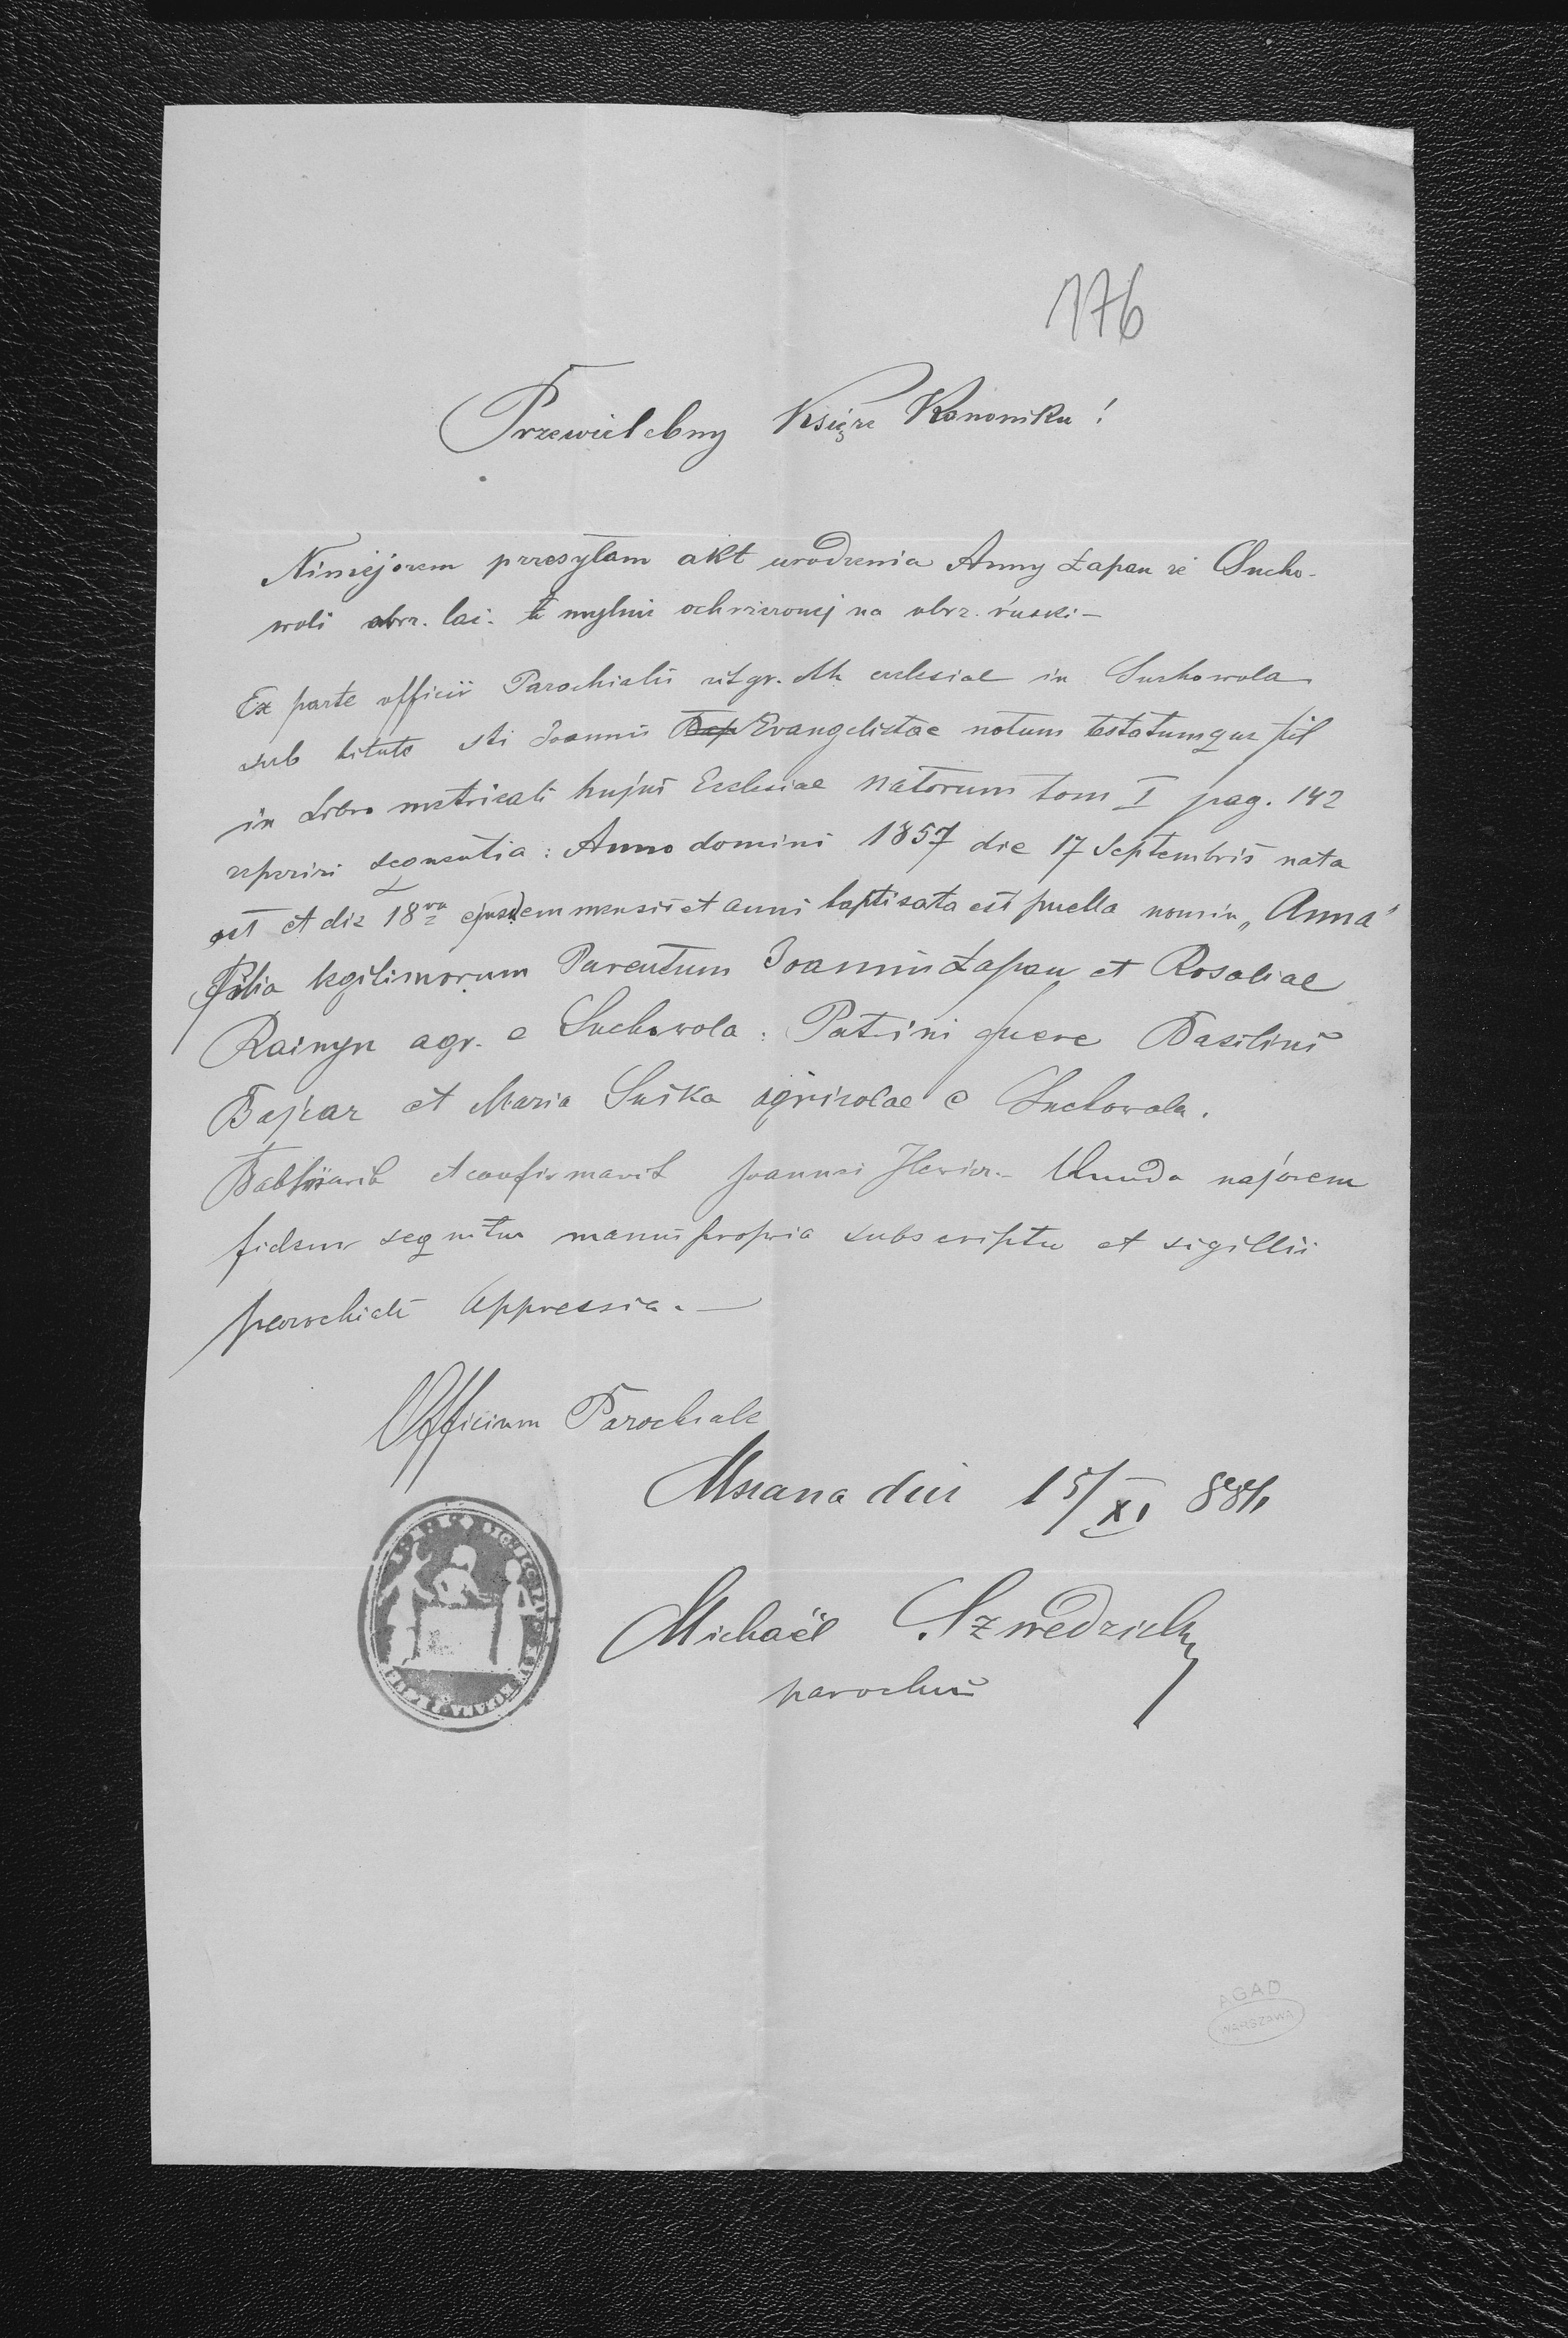 176
Przewielebny Księże Kanoniku!
Niniejszem przesyłam akt urodzenia Anny Łapan ze Sucho-
woli obrz. łac. a mylnie ochrzczonej na obrz. ruski –
Ex parte officii Parochialis rit. gr. cth ecclesiae in Suchowola
sub titulo sti Joannis Bap Evangelistae notum testatumque fit
in Libro metricali hujus Ecclesiae Natorum tom I pag. 142
reperiri sequentia: Anno domini 1857 die 17 Septembris nata
est et die 18va ejusdem mensis et anni baptisata est puella nomin „Anna"
Filia legitimorum Parentum Joannis Łapan et Rosaliae
Rainyn agr. e Suchowola: Patrini fuere Basilius
Bajcar et Maria Suska agricolae e Suchowola.
Babtisavit et confirmavit Joannes Ilewicz. – majorem
fidem sequitur manus propria subscriptu et sigillii
parochiali appressia. —
Officium Parochiale
Mszana die 15/XI 884
Michaël Szwedzicky
parochus
AGAD
WARSZAWA